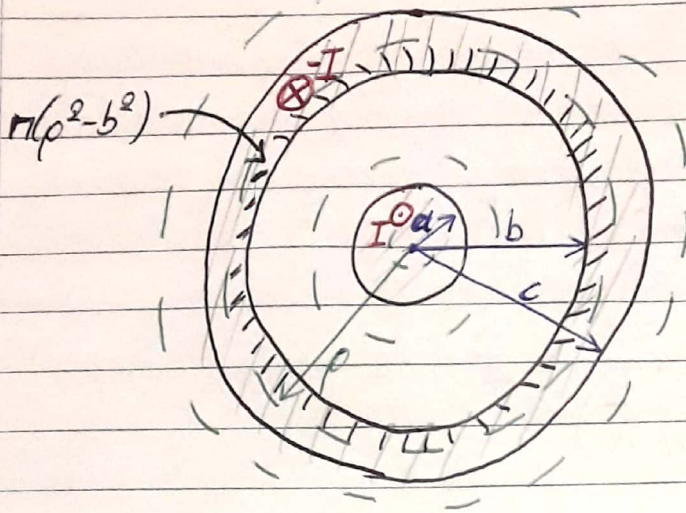 -I
π(ρ²-b²)
I
a
b
c
ρ